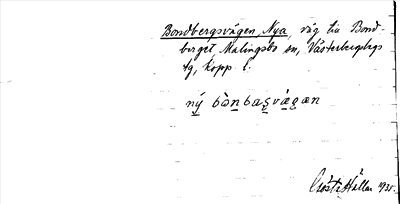 Bondbergsvägen, Nya, väg till Bond-
berget, Malingsbo sn, Västerbergslags
tg, Kopp. l.
ný bòn bas̨vä̀gan
Gösta Hallén 1935.